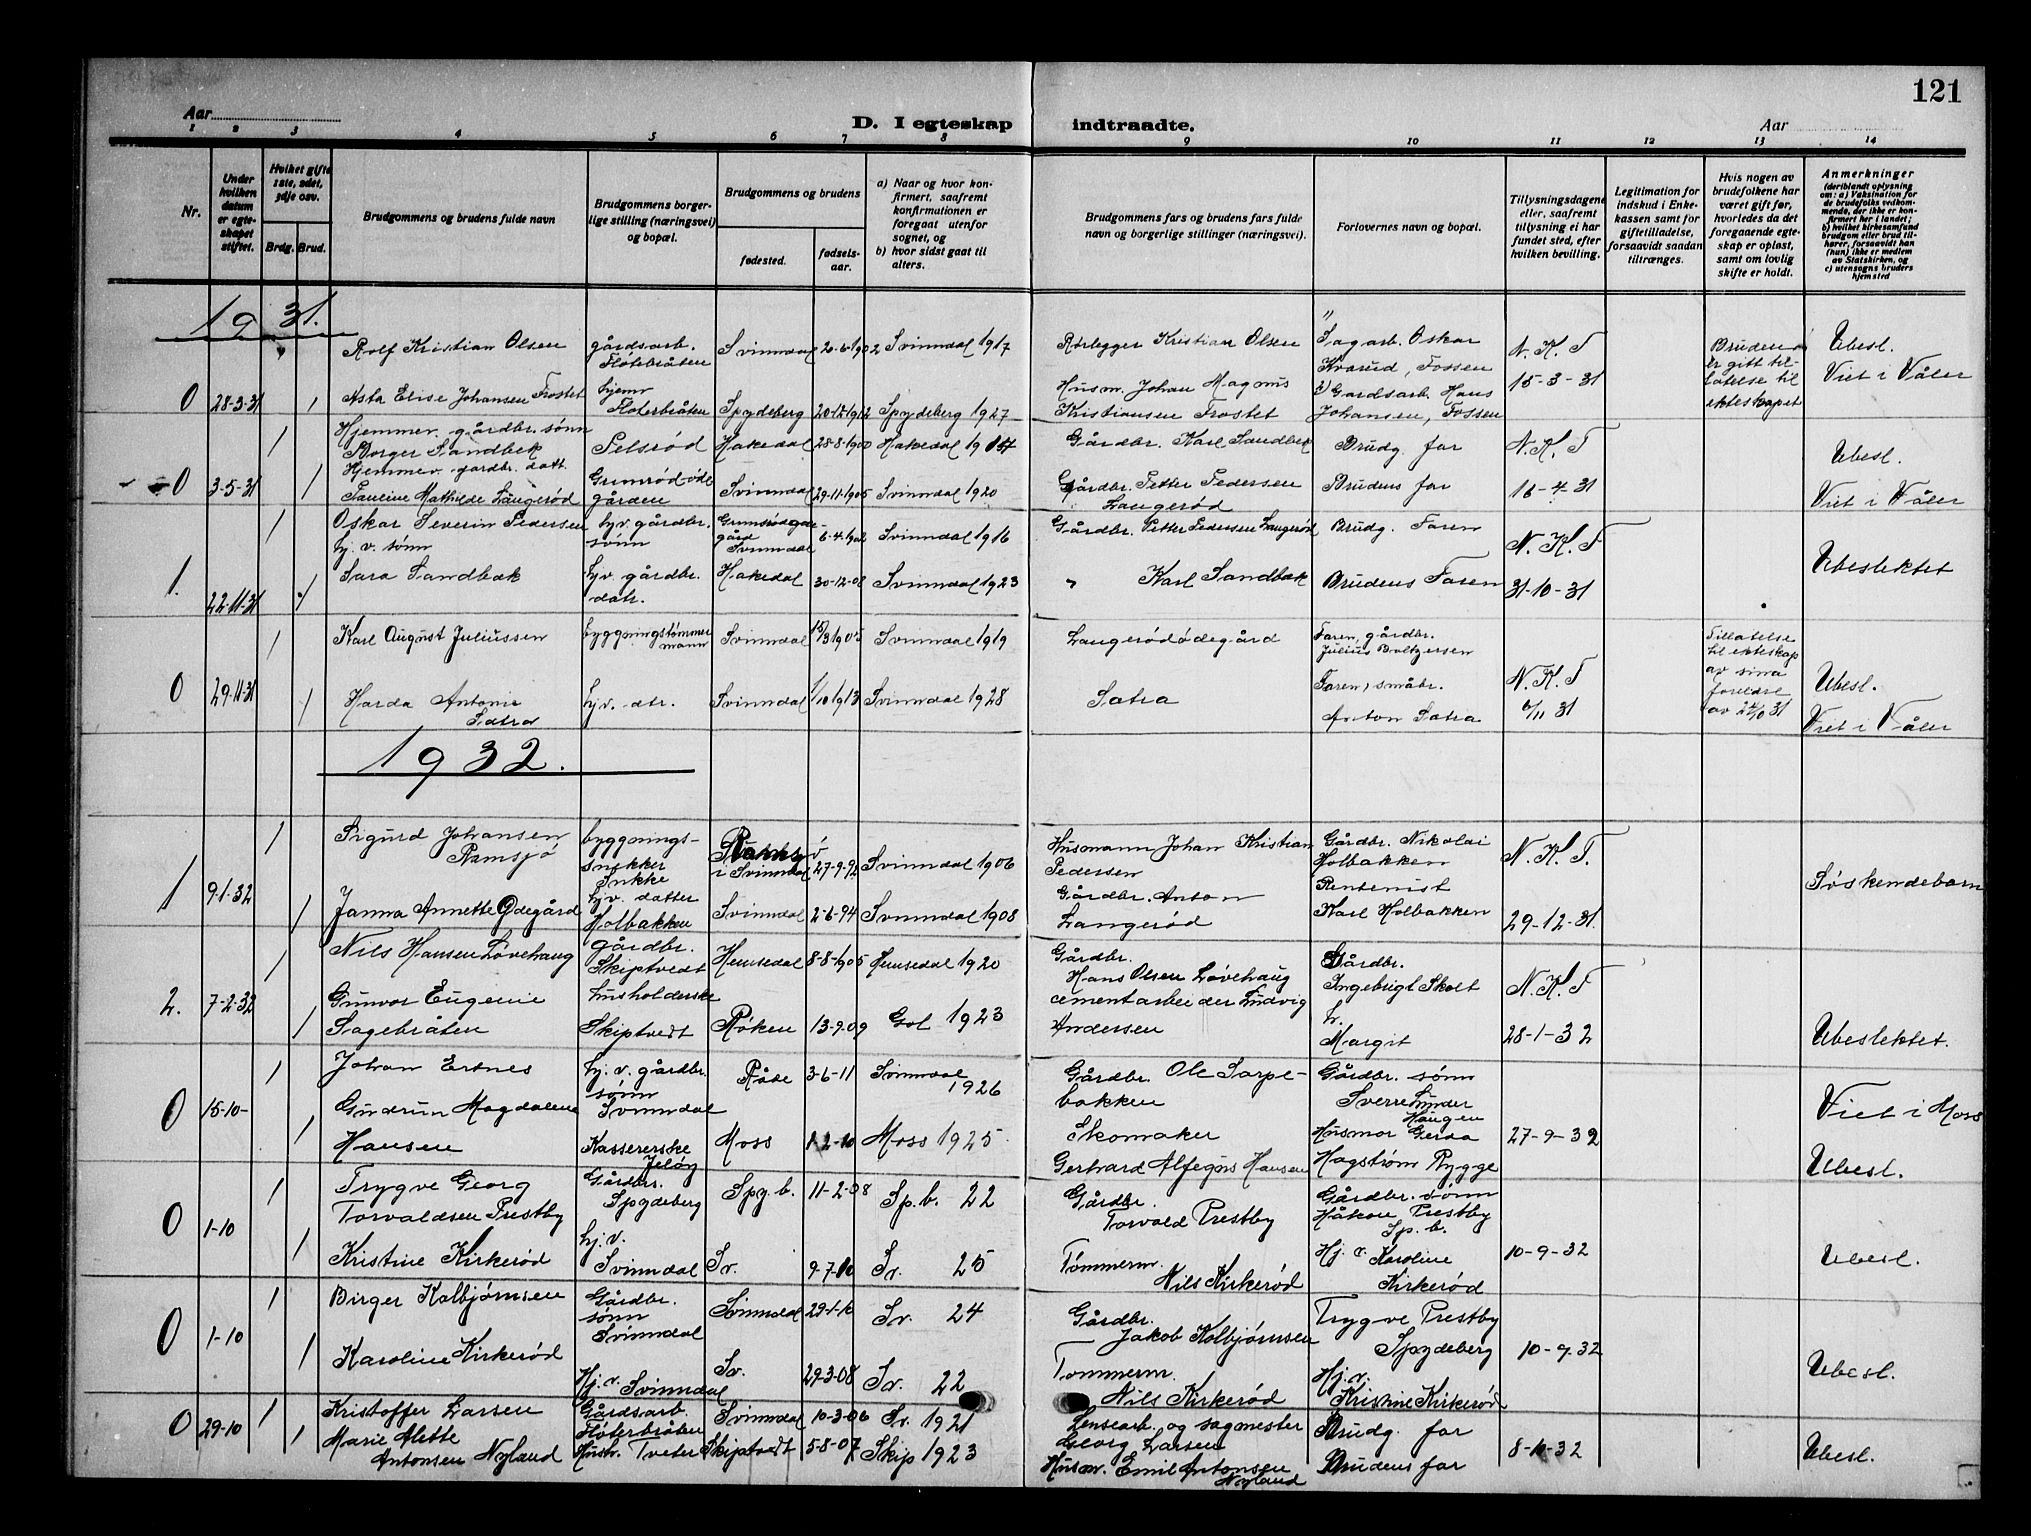 121
Aar
D. I egteskap indtraadte.
Aar
1 2 3 4 5 6 7 8 9 10 11 12 13 14
Nr.
Under hvilken datum er egteskapet stiftet.
Hvilket gifte 1ste, 2det, 3dje osv.
Brdg. Brud.
Brudgommens og brudens fulde navn
Brudgommens borgerlige stilling (næringsvei) og bopæl.
Brudgommens og brudens
fødested.
fødselsaar.
a) Naar og hvor konfirmert, saafremt konfirmationen er foregaat utenfor sognet, og
b) hvor sidst gaat til alters.
Brudgommens fars og brudens fars fulde navn og borgerlige stillinger (næringsvei).
Forlovernes navn og bopæl.
Tillysningsdagene eller, saafremt tillysning ei har fundet sted, efter hvilken bevilling.
Legitimation for indskud i Enkekassen samt for giftetilladelse, forsaavidt saadan tiltrænges.
Hvis nogen av brudefolkene har været gift før, hvorledes da det foregaaende egteskap er opløst, samt om lovlig skifte er holdt.
Anmerkninger
(deriblandt oplysning om: a) Vaksination for de brudefolks vedkommende, der ikke er konfirmert her i landet; b) hvilket kirkesamfund brudgom eller brud tilhører, forsaavidt han (hun) ikke er medlem av Statskirken, og c) utensogns bruders hjemsted
1931.
Rolf Kristian Olsen gårdsarb. Fløtebråten Svinndal 2-6-1902 Svinndal 1917 Rørbygger Kristian Olsen Sagarb. Oskar Kvarud, Fossen N. K. T Bruden er gitt tillatelse til ekteskapet Ubesl.
0 28-3-31 / Asta Elise Johansen Frostet hjemv Fløterbråten Spydeberg 20-12-1912 Spydeberg 1927 Husm. Johan Magnus Kristiansen Frostet 2) Gardsarb. Hans Johansen, Fossen 15-3-31 Viet i Våler
/ Hjemmev. gårdbr. sønn Borger Sandbek Selsrød Hakedal 28-8-1900 Hakedal 1914 Gårdbr. Karl Sandbek Brudg. far N. K. T Ubesl.
0 3-5-31 / Hjemmev. gardbr. datt. Pauline Mathilde Langerød Grimrød-ødegården Svinndal 29-11-1905 Svinndal 1920 Gårdbr. Petter Pedersen Langerød Brudens far 16-4-31 Viet i Våler
/ Oskar Severin Pedersen hj. v. sønn hj.v. gårdbr. sønn gård Svinndal 6-4-1902 Svinndal 1916 Gårdbr. Petter Pedersen Langerød Brudg. Faren N. K. T Ubeslektet
1. 22-11-31 / Sara Sandbæk hj.v. gårdbr. datr. Hakedal 30-12-08 Svinndal 1923 " Karl Sandbæk Brudens Faren 31-10-31
/ Karl August Juliussen byggningstømmermann Svinndal 15/3 1905 Svinndal 1919 Langerødødegård Faren, gårdbr. Julius Boltzersen N. K. T Tillatelse til ekteskap av sine foreldre av 24/10 31 Ubesl.
0 29-11-31 / Harda Antonie Satra hj.v. dtr. Svinndal 1/10 1913 Svinndal 1928 Satra Faren, småbr. Anton Satra 6/11 31 Viet i Våler
1932.
/ Sigurd Johansen Ramsjø byggningssnekker Ramsjø i Svinndal 27-9-92 Svinndal 1906 Husmann Johan Kristian Pedersen Gårdbr. Nikolai Holbakken N. K. T. Søskendebarn
1 9-1-32 / Janna Annette Ødegård hj.v. datter Holbakken Svinndal 2-6-94 Svinndal 1908 Gårdbr. Anton Langerød Rentenist Karl Holbakken 29-12-31.
/ Nils Hansen Løvehaug gårdbr. Skiptvedt Hemsedal 8-8-1905 Hemsedal 1920 Gårdbr. Hans Olsen Løvehaug Gårdbr. Ingebrigt Skolt N. K. T
2. 7-2-32 / Gunvor Eugenie Sagebråten husholderske Skiptvedt Røken 13-9-09 Gol 1923 cementarbeider Ludvig Andersen Margit 28-1-32 Ubeslektet.
/ Johan Ertnes hj. v. gårdbr. sønn Svinndal Råde 3-6-11 Svinndal 1926 Gårdbr. Ole Sarpebakken Gårdbr. sønn Sverre Haugen Viet i Moss
0 15-10- / Gudrun Magdalene Hansen Kassererske Jeløy Moss 1-2-10 Moss 1925 Skomaker Gerhard Alfegus Hansen Husmor Gerda Hagstrøm Rygge 27-9-32 Ubesl.
/ Trygve Georg Torvaldsen Prestby Gårdbr. Spydeberg Spy. b. 11-2-08 Sp. b. 22 Gårdbr. Torvald Prestby Gårdbr. sønn Håkon Prestby Sp. b.
0 1-10 / Kristine Kirkerød hj.v. Svinndal Sv. 9-7-10 Sv. 25 Tømmerm. Nils Kirkerød Hj. v. Karoline Kirkerød 10-9-32 Ubesl.
/ Birger Kolbjørnsen Gårdbr. sønn Svinndal Svinndal 29-1-10 Sv. 24 Gårdbr. Jakob Kolbjørnsen Trygve Prestby Spydeberg
0 1-10 / Karoline Kirkerød Hj. v. Svinndal Sv. 29-3-08 Sv. 22 Tømmerm. Nils Kirkerød Hj.v. Kristine Kirkerød 10-9-32 Ubesl.
/ Kristoffer Larsen Gårdsarb. Fløterbråten Svinndal 10-3-06 Sv. 1921 Lensearb. og sagmester Georg Larsen Brudg. far
0 29-10 / Marie Alette Antonsen Nyland Tveter Skiptvedt 5-8-07 Skip 1923 Husm. Emil Antonsen Nyland Brudens far 8-10-32 Ubesl.